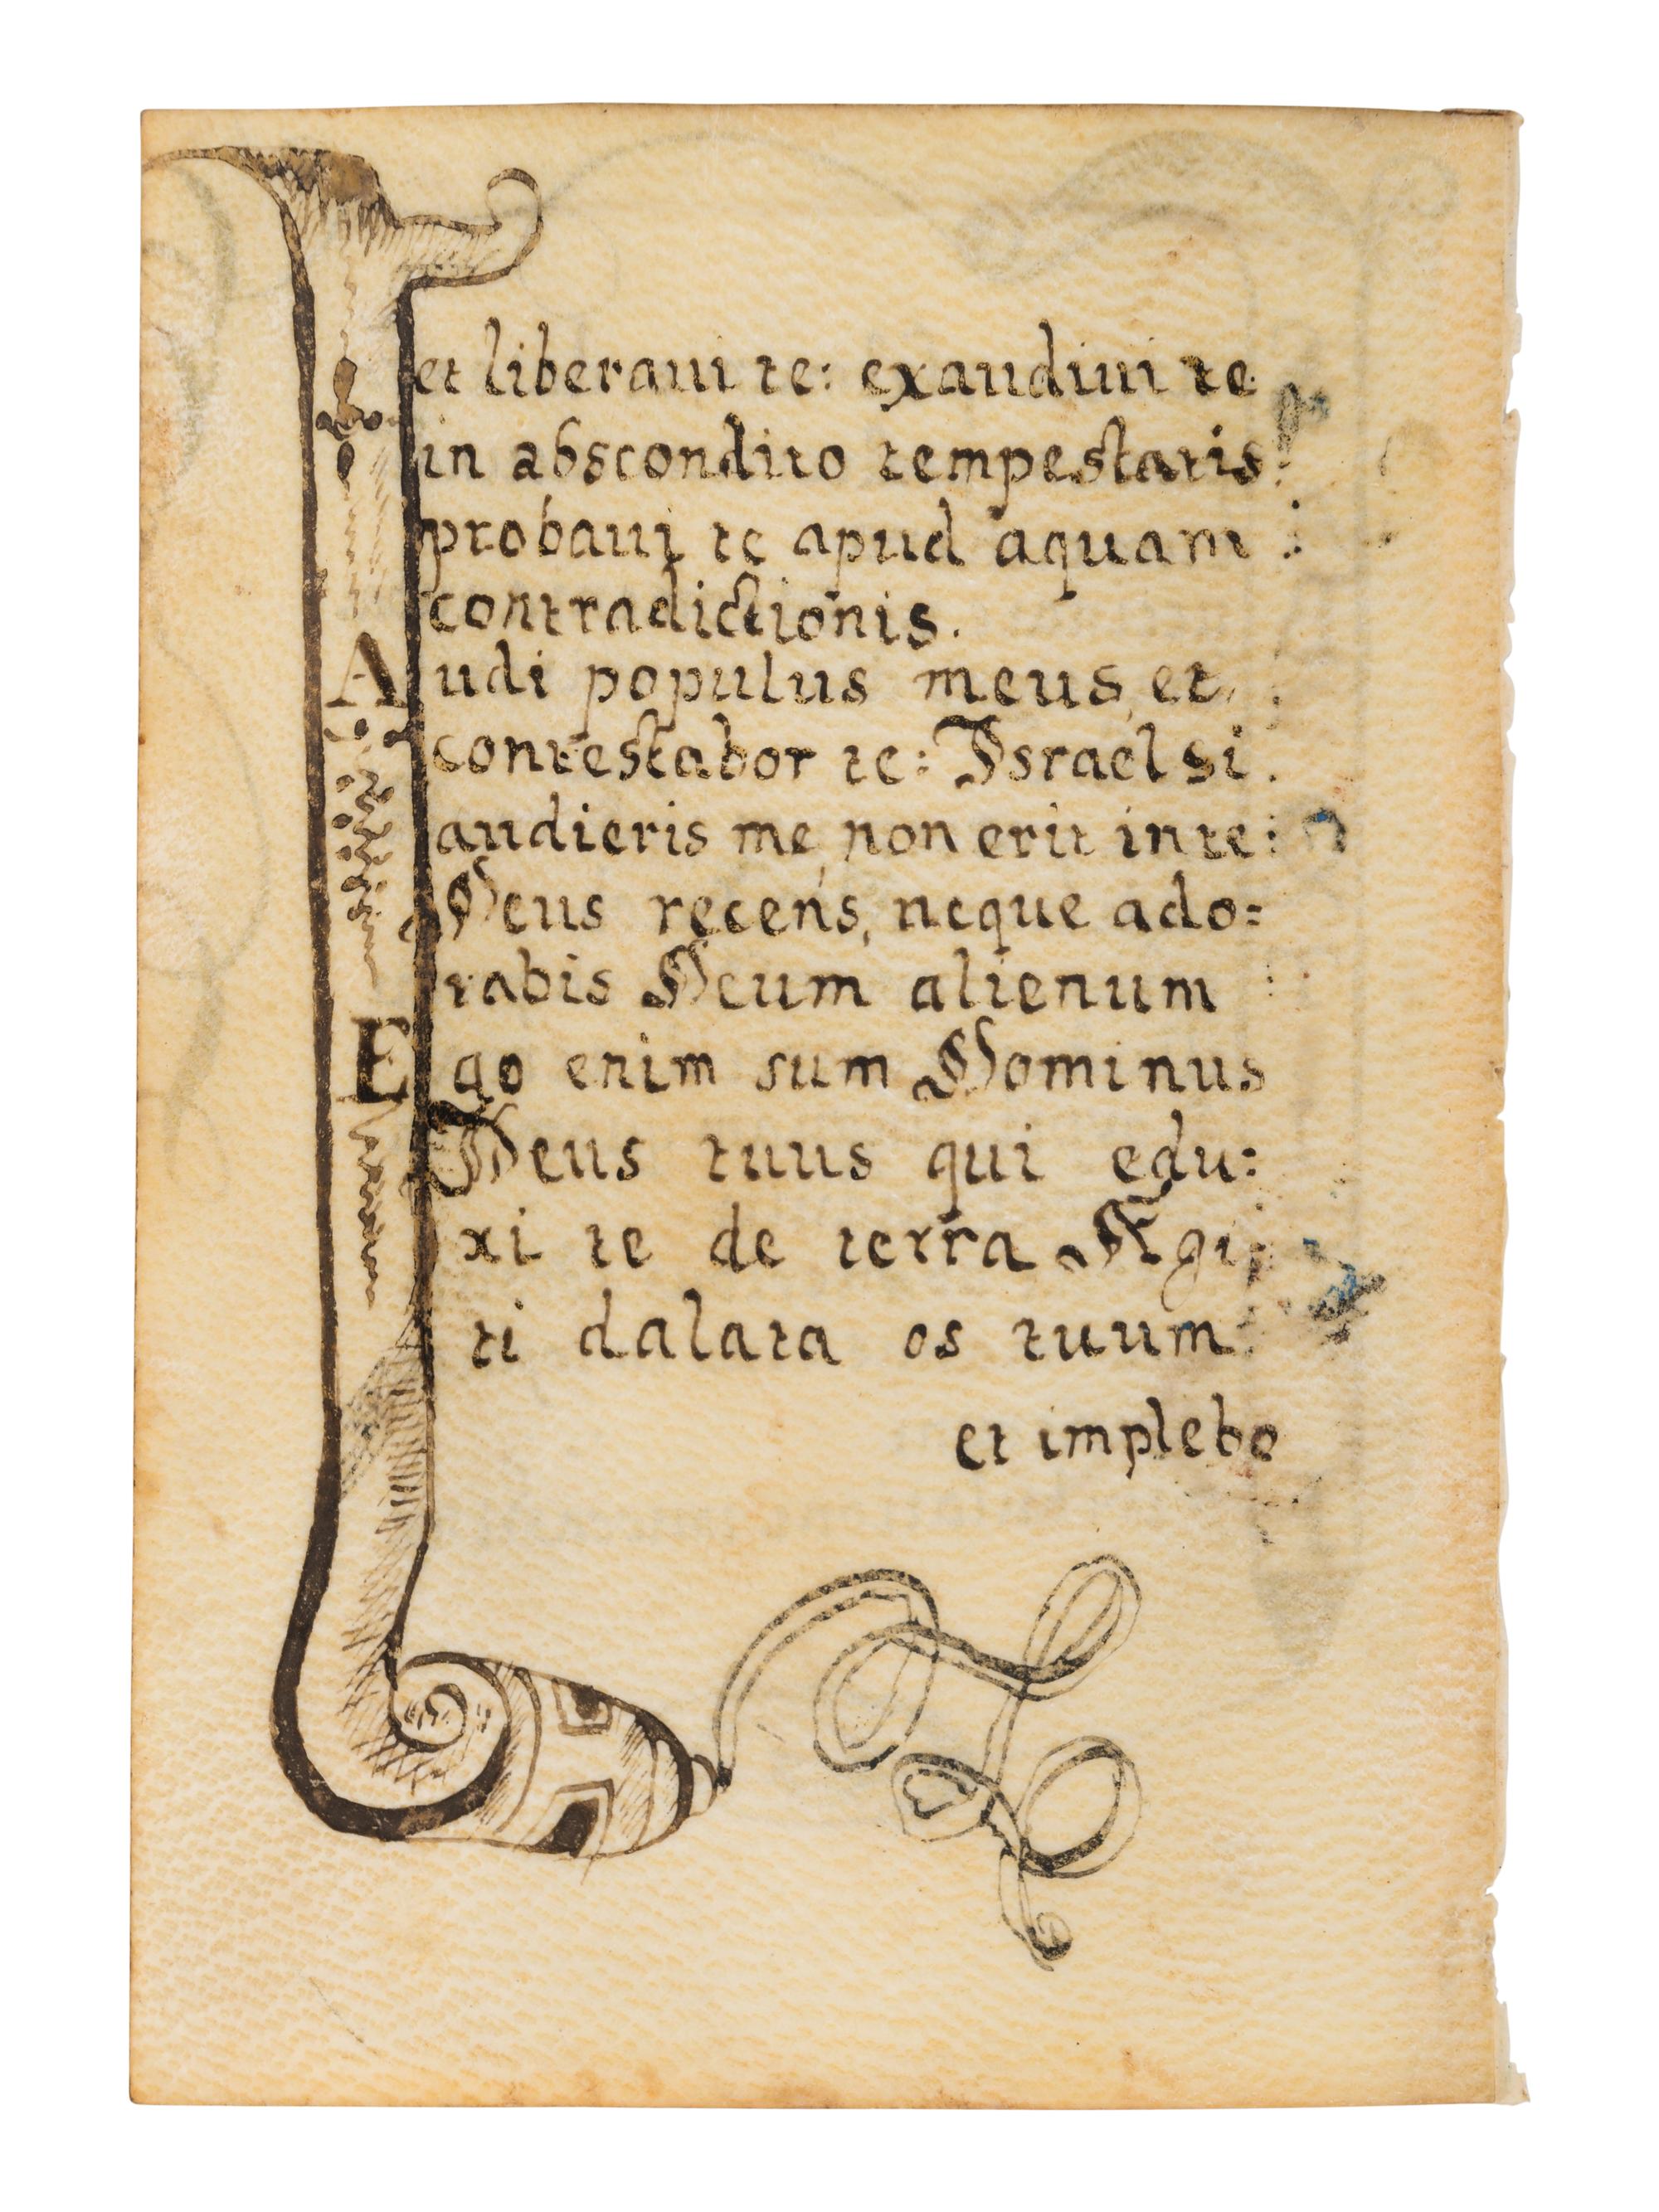 et liberaui te: exaudiui te
in abscondito tempestatis:
probaui te apud aquam :
contradictionis.
Audi populus meus, et
contestabor te: Israel si
audieris me, non erit in te:
Deus recens, neque ado=
rabis Deum alienum :
Ego enim sum Dominus
Deus tuus qui edu:
xi te de terra Ægip
ti dalata os tuum:
et implebo